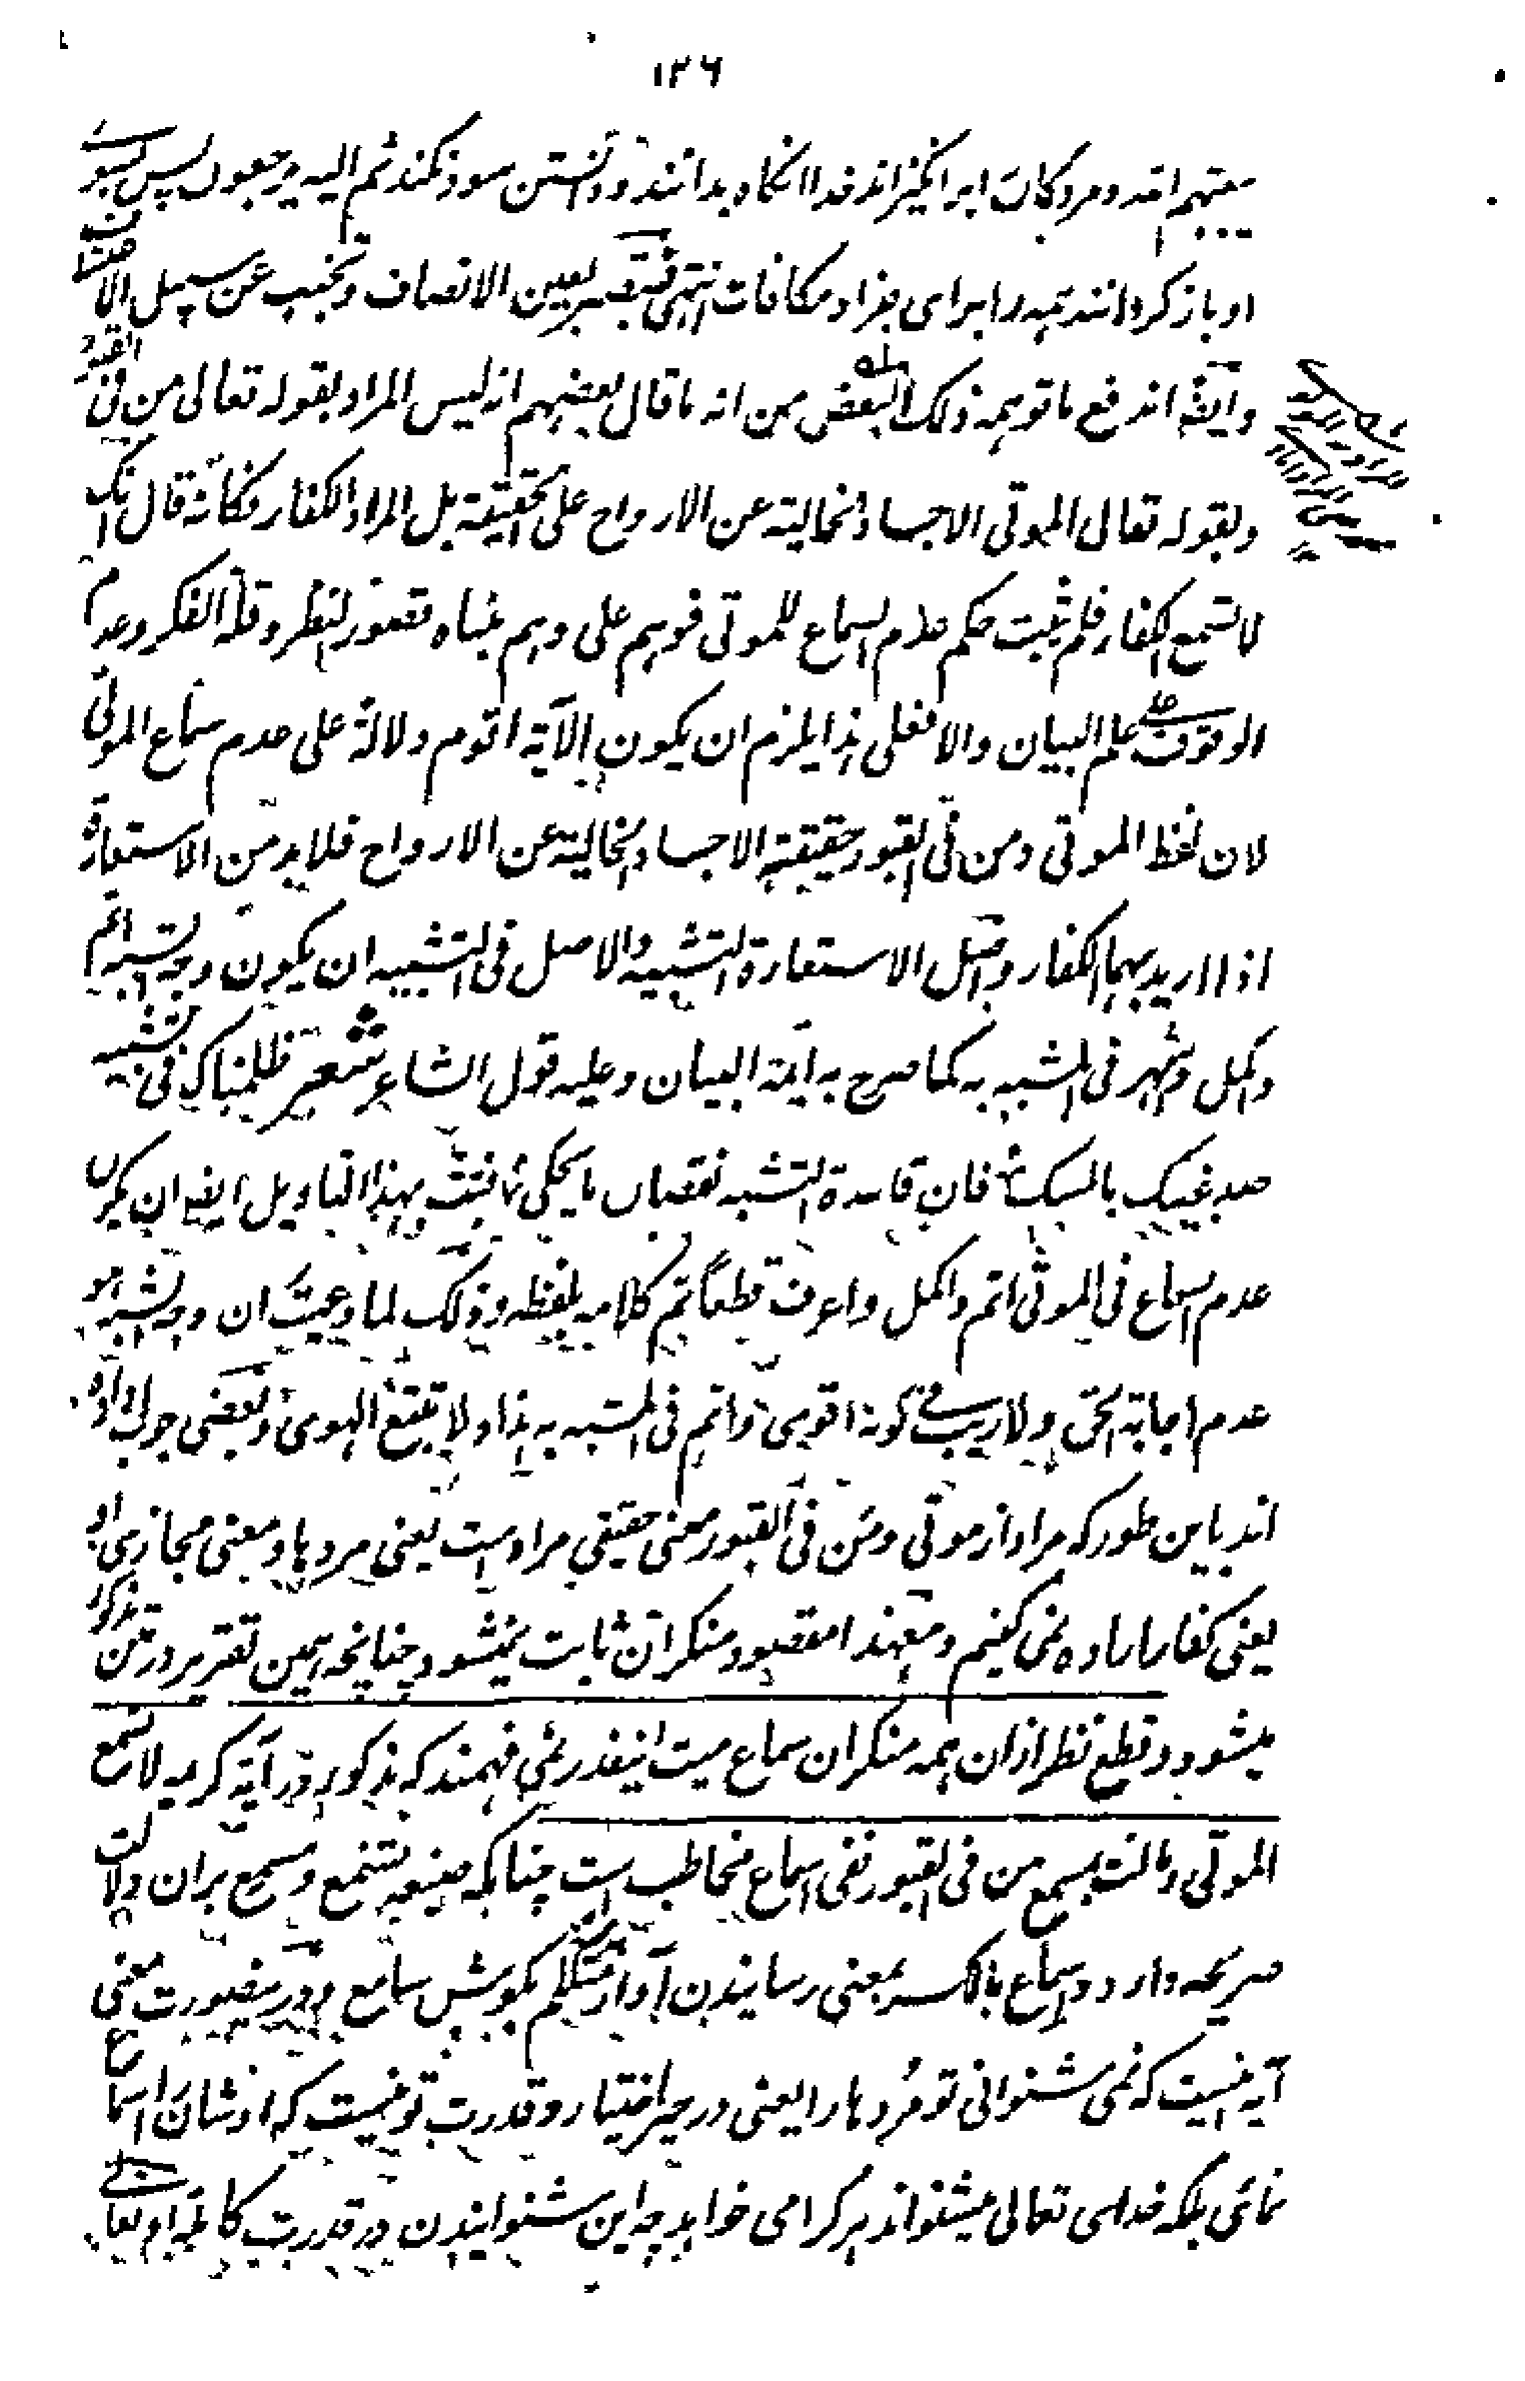 ۱۲۶
یبعثهم الله و مردگان را بر انگیزاند خدا انگاه بدانند و دانستن سود نکند ثم الیه یرجعون پس بسوی
او باز گردانند همه را برای جزا و مکافات انتهی فتبصر بعین الانصاف و تجنب عن سبیل الاعتساف
وایضًا اندفع ما توهمه ذلک البعض من انه ما قال بعضهم انه لیس المراد بقوله تعالی من فی القبور
و بقوله تعالی الموتی الاجساد الخالیة عن الارواح علی الحقیقة بل المراد الکفار فکانه قال انک
لا تسمع الکفار فلم یثبت حکم عدم السماع للموتی فوهم علی وهم مبناه قصور النظر و قلة الفکر و عدم
الوقوف علی علم البیان والا فعلی هذا یلزم ان یکون الآیة اقوم دلالة علی عدم سماع الموتی
لان لفظ الموتی و من فی القبور حقیقته الاجساد الخالیة عن الارواح فلابد من الاستعارة
اذا ارید بهما الکفار و اصل الاستعارة التشبیه والاصل فی التشبیه ان یکون وجه الشبه اتم
واکمل واشهر فی المشبه به کما صرح به ائمة البیان و علیه قول الشاعر شعر ظلمناک فی تشبیه
صدغیک بالمسک فان قاعدة التشبیه نقصان ما یحکی فثبت بهذا التاویل ایضا ان یکون
عدم السماع فی الموتی اتم واکمل واعرف قطعاً تم کلامه بلفظه و ذلک لما وعیت ان وجه الشبه هو
عدم اجابة الحق ولا ریب فی کونه اقوی و اتم فی المشبه به هذا و لا تتبع الهوی و بعضی جواب داده
اند باین طور که مراد از موتی و من فی القبور معنی حقیقی مراد است یعنی مردها و معنی مجازی او
یعنی کفار اراده نمی کنیم و معهذا مقصود منکران ثابت نمیشود چنانچه همین تقریر در متن مذکور
میشود و قطع نظر ازان همه منکران سماع میت اینقدر نمی فهمند که مذکور در آیة کریمه لا تسمع
الموتی و ما انت بمسمع من فی القبور نفی اسماع مخاطب است چنانکه صیغه تسمع و مسمع بران دلالت
صریحه دارد و اسماع بالکسر بمعنی رسانیدن آواز متکلم بگوش سامع و درینصورت معنی
آیه اینست که نمی شنوانی تو مُردها را یعنی در حیز اختیار و قدرت تو نیست که اوشان را اسماع
نمائی بلکه خدای تعالی میشنواند هر کرا می خواهد چه این شنوانیدن در قدرت کامله او تعالی